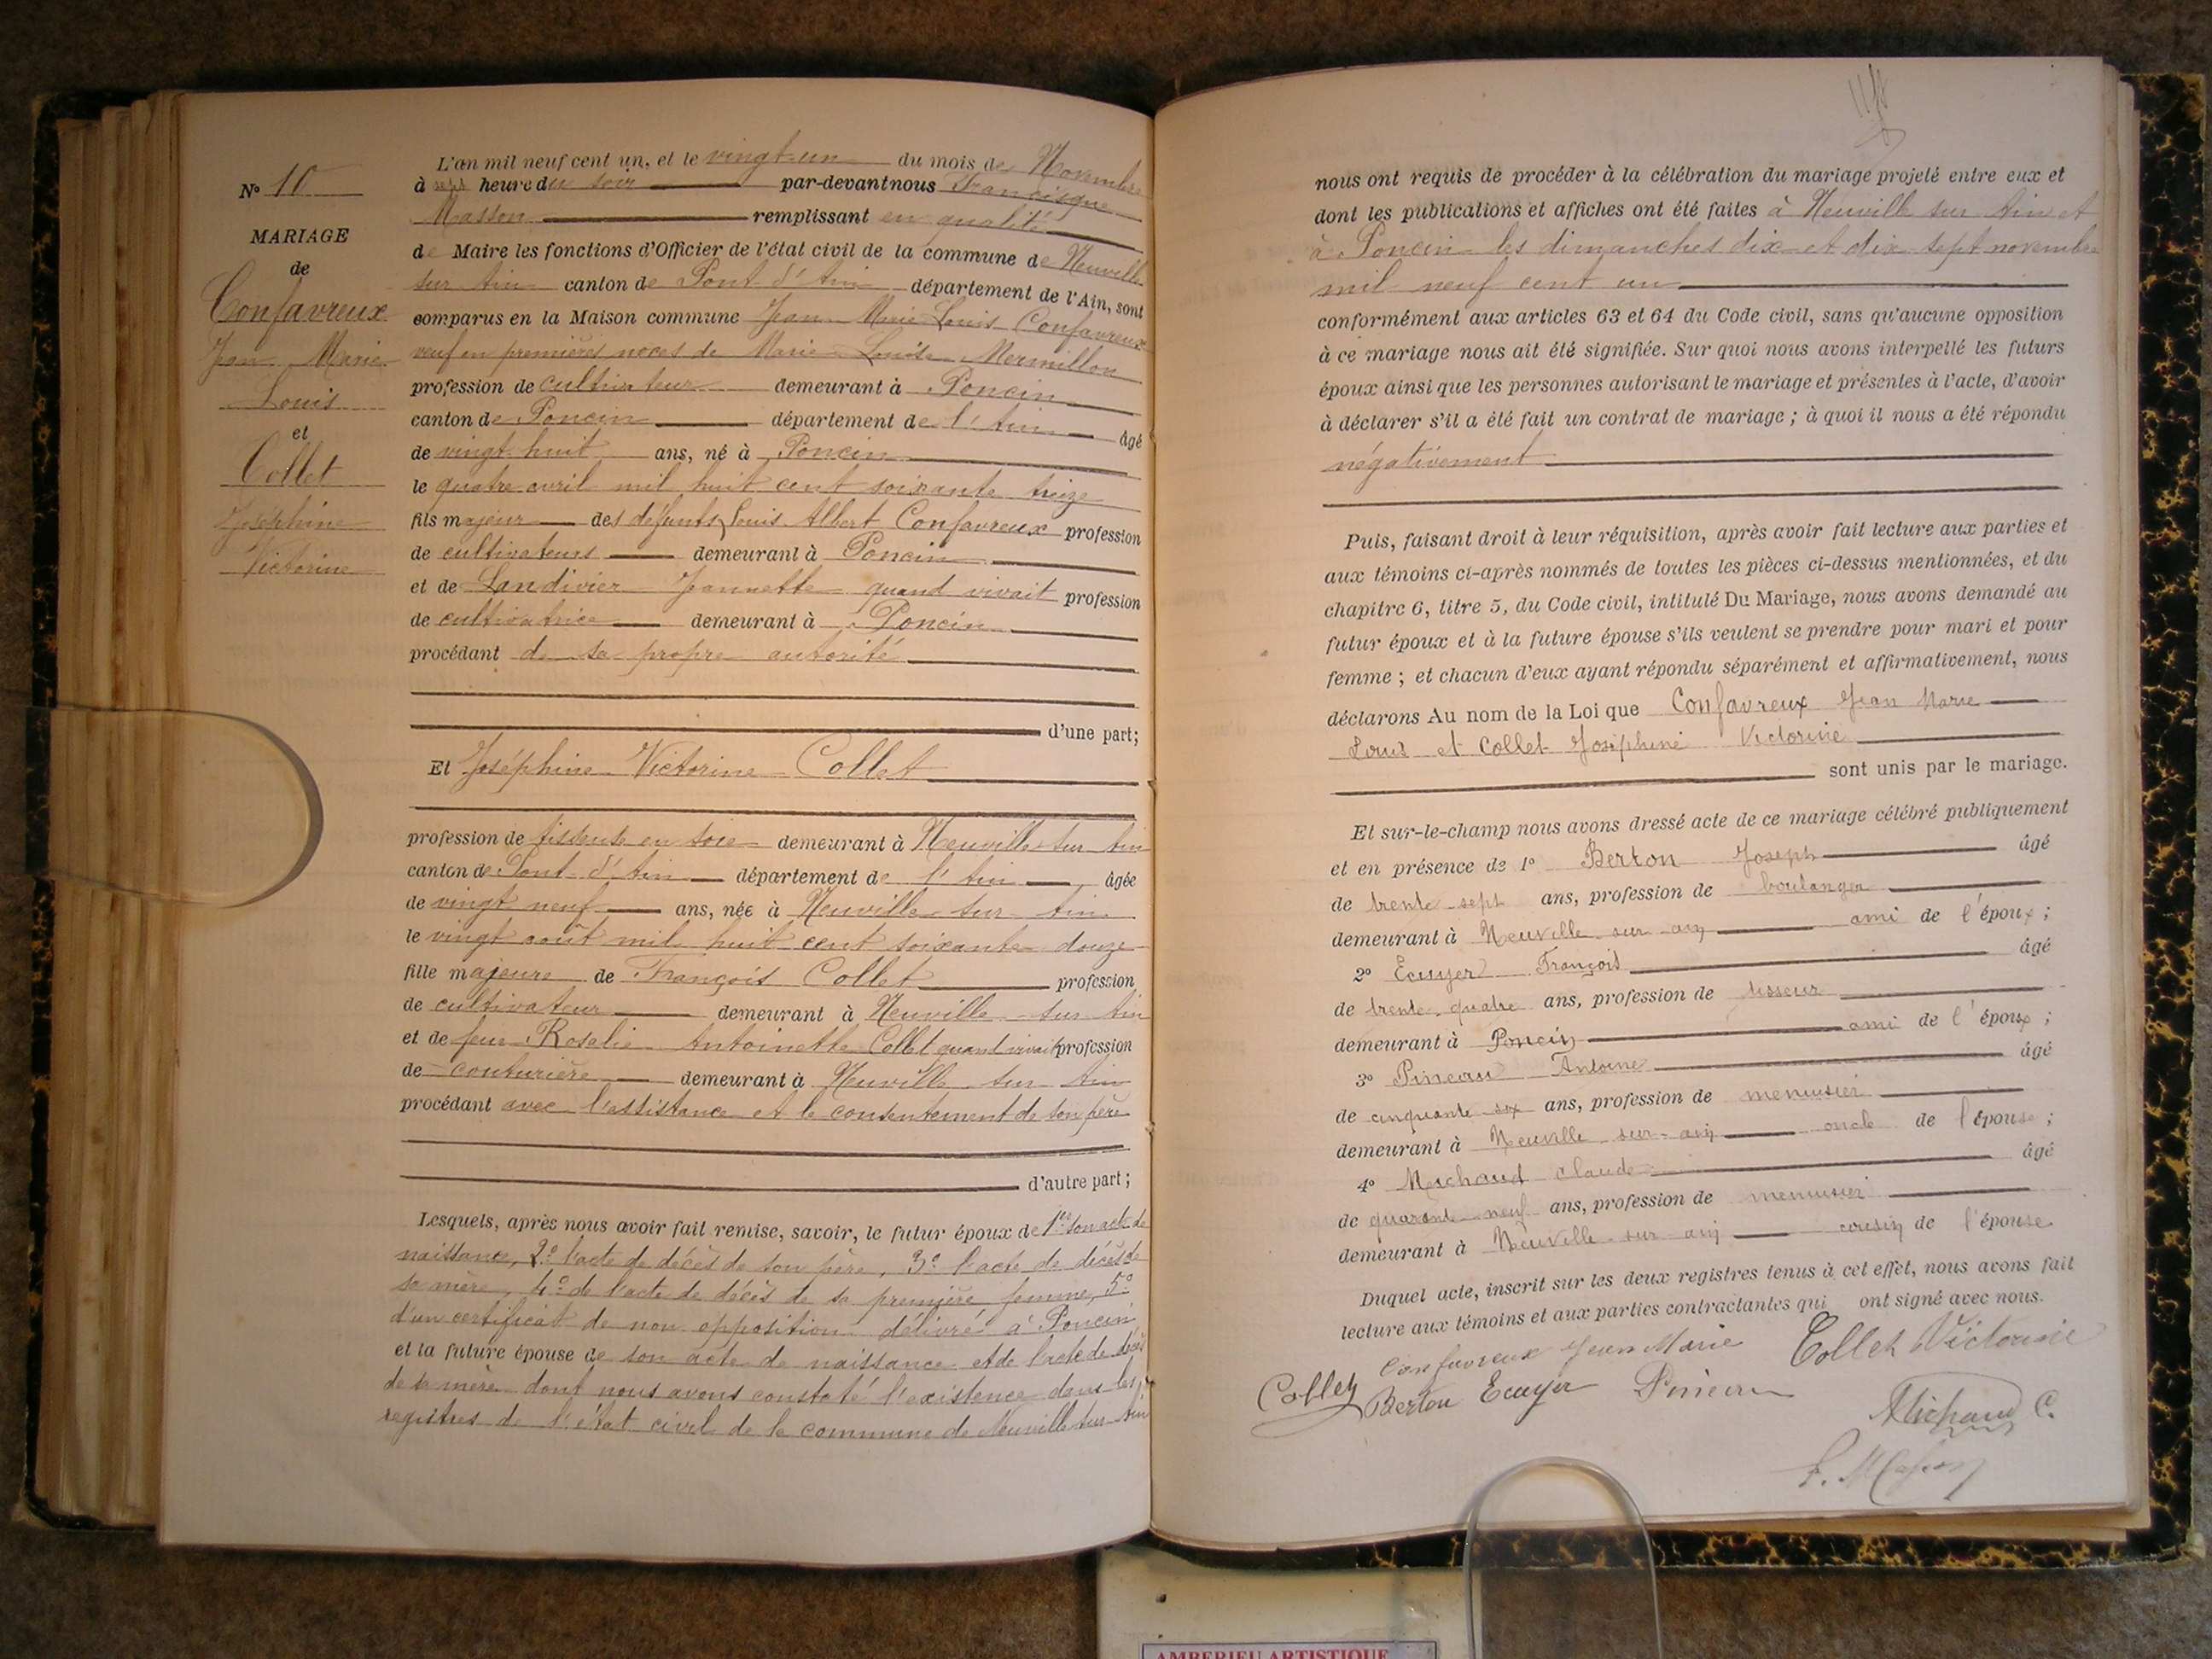 N° 10
MARIAGE
de
Confavreux
Jean Marie
Louis
et
Collet
Joséphine
Victorine
L'an mil neuf cent un, et le vingt-un du mois de Novembre
à sept heure du soir par-devant nous Francisque
Masson remplissant en qualité
de Maire les fonctions d'Officier de l'état civil de la commune de Neuville
sur Ain canton de Pont d'Ain département de l'Ain, sont
comparus en la Maison commune Jean Marie Louis Confavreux
veuf en premières noces de Marie Louise Mermillon
profession de cultivateur demeurant à Poncin
canton de Poncin département de l'Ain âgé
de vingt huit ans, né à Poncin
le quatre avril mil huit cent soixante treize
fils majeur des défunts Louis Albert Confavreux profession
de cultivateurs demeurant à Poncin
et de Landivier Jeannette quand vivait profession
de cultivatrice demeurant à Poncin
procédant de sa propre autorité
d'une part;
Et Joséphine Victorine Collet
profession de tisseuse en soie demeurant à Neuville sur Ain
canton de Pont d'Ain département de l'Ain, âgée
de vingt neuf ans, née à Neuville sur Ain
le vingt août mil huit cent soixante douze
fille majeure de François Collet profession
de cultivateur demeurant à Neuville sur Ain
et de feue Rosalie Antoinette Collet quand vivait profession
de couturière demeurant à Neuville sur Ain
procédant avec l'assistance et le consentement de son père
d'autre part;
Lesquels, après nous avoir fait remise, savoir, le futur époux de 1° son acte de
naissance, 2° l'acte de décès de son père, 3° l'acte de décès de
sa mère, 4° de l'acte de décès de sa première femme, 5°
d'un certificat de non opposition délivré à Poncin
et la future épouse de son acte de naissance et de l'acte de décès
de sa mère dont nous avons constaté l'existence dans les
registres de l'état civil de la commune de Neuville sur Ain
nous ont requis de procéder à la célébration du mariage projeté entre eux et
dont les publications et affiches ont été faites à Neuville sur Ain et
à Poncin les dimanches dix et dix sept novembre
mil neuf cent un
conformément aux articles 63 et 64 du Code civil, sans qu'aucune opposition
à ce mariage nous ait été signifiée. Sur quoi nous avons interpellé les futurs
époux ainsi que les personnes autorisant le mariage et présentes à l'acte, d'avoir
à déclarer s'il a été fait un contrat de mariage ; à quoi il nous a été répondu
négativement
Puis, faisant droit à leur réquisition, après avoir fait lecture aux parties et
aux témoins ci-après nommés de toutes les pièces ci-dessus mentionnées, et du
chapitre 6, titre 5, du Code civil, intitulé Du Mariage, nous avons demandé au
futur époux et à la future épouse s'ils veulent se prendre pour mari et pour
femme ; et chacun d'eux ayant répondu séparément et affirmativement, nous
déclarons Au nom de la Loi que Confavreux Jean Marie
Louis et Collet Joséphine Victorine
sont unis par le mariage.
Et sur-le-champ nous avons dressé acte de ce mariage célébré publiquement
et en présence de 1° Berton Joseph âgé
de trente-sept ans, profession de boulanger
demeurant à Neuville-sur-ain ami de l'époux ;
2° Ecuyer François âgé
de trente-quatre ans, profession de tisseur
demeurant à Poncin ami de l'époux ;
3° Pineau Antoine âgé
de cinquante-six ans, profession de menuisier
demeurant à Neuville-sur-ain oncle de l'épouse ;
4° Michaud Claude âgé
de quarante-neuf ans, profession de menuisier
demeurant à Neuville-sur-ain cousin de l'épouse
Duquel acte, inscrit sur les deux registres tenus à cet effet, nous avons fait
lecture aux témoins et aux parties contractantes qui ont signé avec nous.
Confavreux Jean Marie Collet Victorine
Collet Berton Ecuyer Pineau
Michaud C.
F. Masson
AMBERIEU ARTISTIQUE